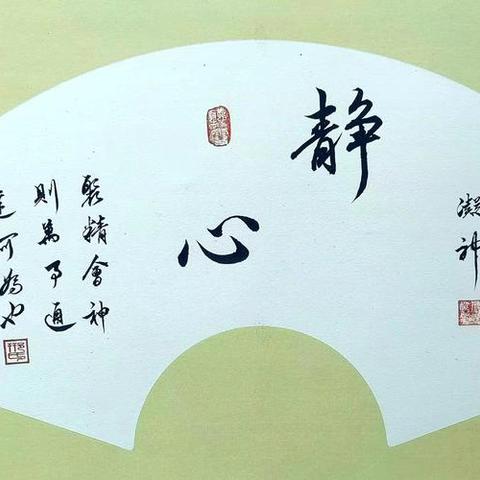 凝神
静
心
聚精會神
則萬事通
達可為也